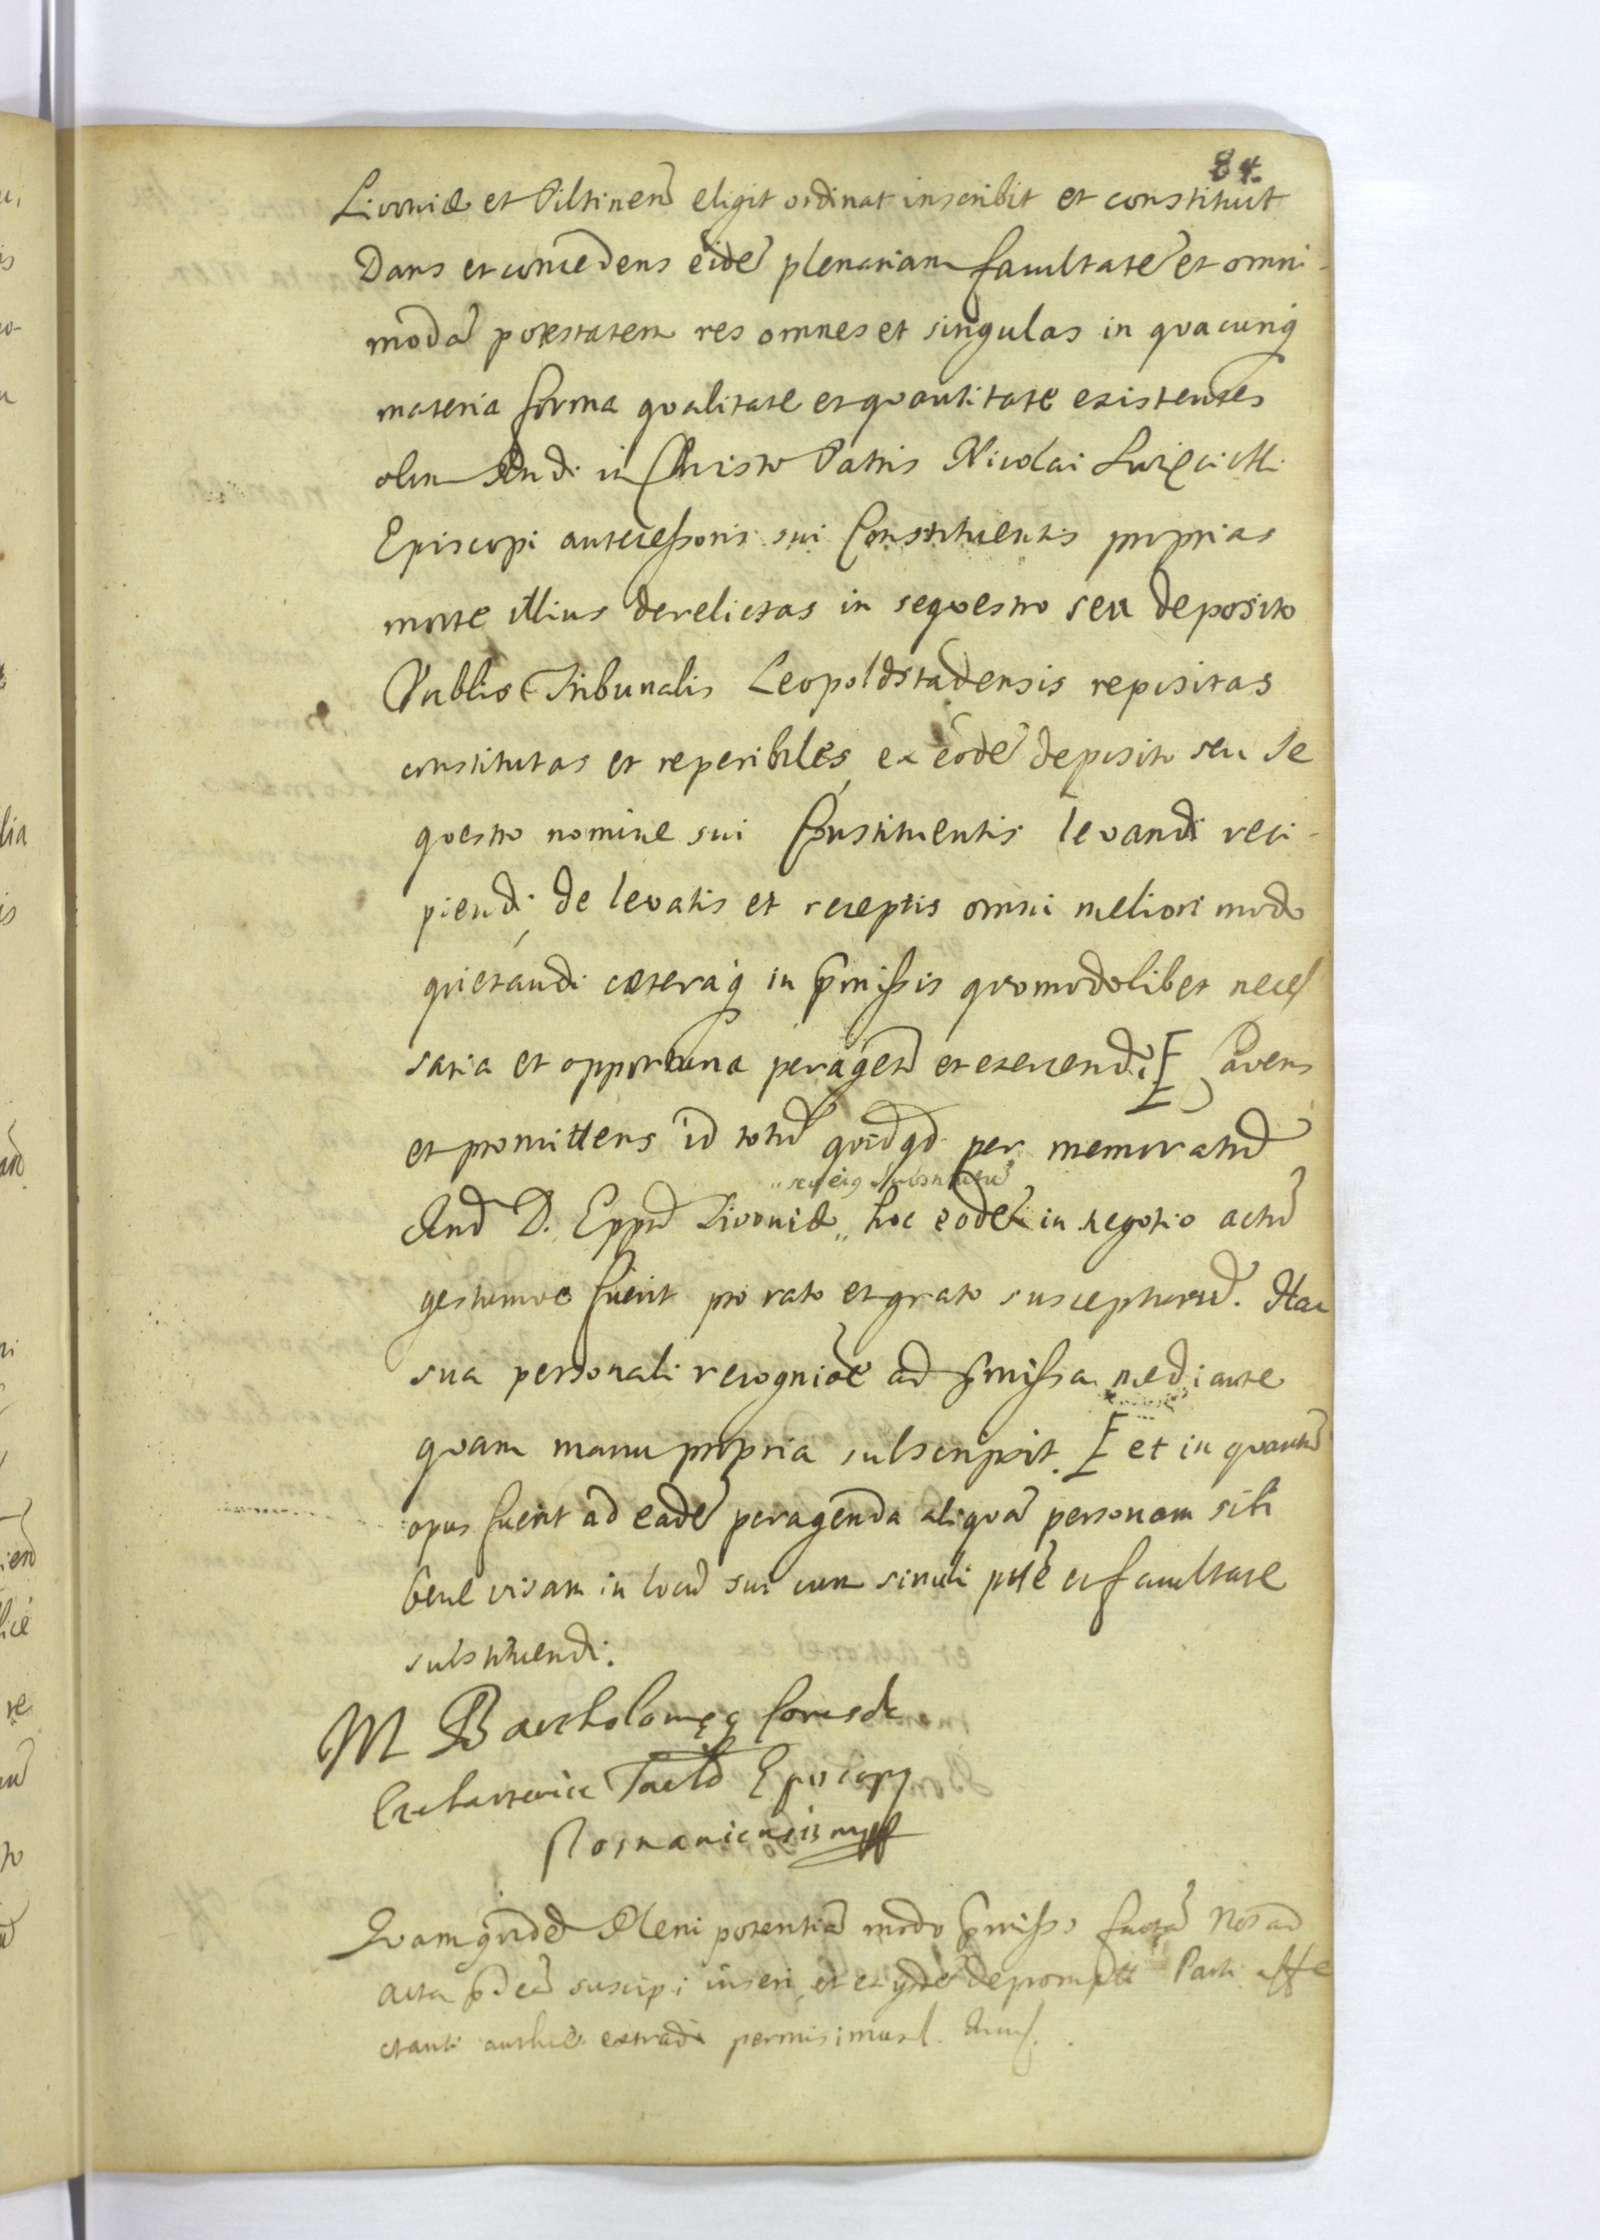 84.
Livoniæ et Piltineñ eligit ordinat inscribit et constituit
Dans et concedens eidē plenariam facultatē et omni-
modā potestatem res omnes et singulas in quacunq́
materia forma qualitate et quantitate existentes
olim Rndi in Christo Patris Nicolai
Episcopi antecessoris sui Constituentis proprias
morte illius derelictas in sequestro seu deposito
Publico Tribunalis Leopoldstadensis repositas
constitutas et reperibiles, ex eodē deposito seu se
questro nomine sui Constituentis levandi reci-
piendi, de levatis et receptis omni meliori modo
quietandi cæteraq́ in p̃missis quomodolibet neces
saria et opportuna peragen̄d et exercendi [ Cavens
et promittens id totū quidqd per memoratū
seu eiꝯ substitutū
Rnd D. Eppū Livoniæ „ hoc eodē in negotio actū
gestumve fuerit pro rato et grato suscepturū. Hac
sua personali recogniōe ad p̃missa mediante
quam manu propria subscripsit. [ et in quantū
opus fuerit ad eadē peragenda aliquā personam sibi
bene visam in locū sui cum simili ptē et facultate
substituendi.
M Bartholomeꝯ
Episcopꝯ
Posnaniensis mp
Quamquidē Pleni potentiā modo p̃misso factā Nos ad
acta p̃ñ suscipi inseri, et ex ysdē depromptā Parti affe
ctanti authēn extradi permisimus.